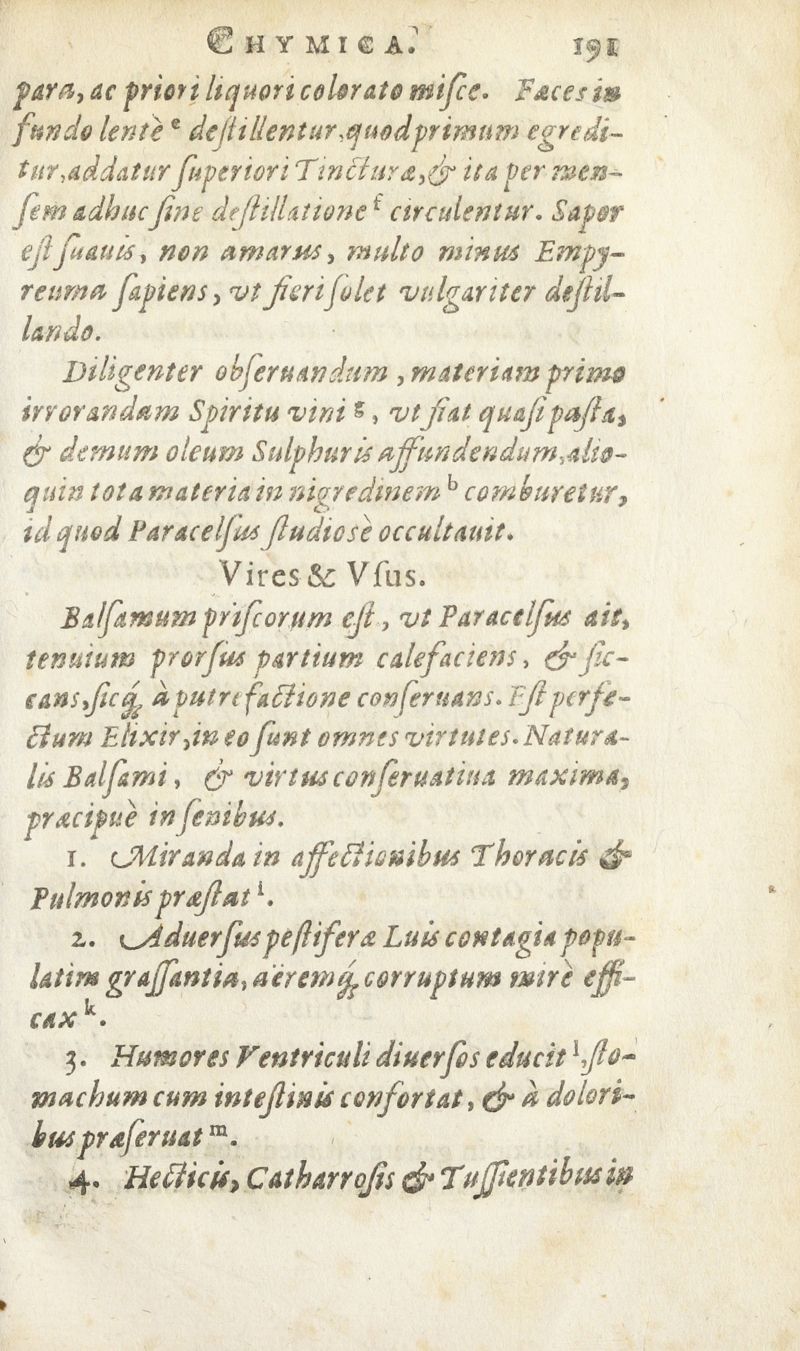 CHYMICA. 191
para, ac priori liquori colorato misce. Faces in
fundo lentè ᵉ destillentur, quod primum egredi-
tur, addatur superiori Tincturæ, & ita per men-
sem adhuc sine destillatione ᶠ circulentur. Sapor
est suauis, non amarus, multo minus Empy-
reuma sapiens, vt fieri solet vulgariter destil-
lando.
Diligenter obseruandum, materiam primo
irrorandam Spiritu vini ᵍ, vt fiat quasi pasta,
& demum oleum Sulphuris affundendum, alio-
quin tota materia in nigredinem ʰ combureretur,
id quod Paracelsus studiosè occultauit.
Vires & Vsus.
Balsamum priscorum est, vt Paracelsus ait,
tenuium prorsus partium calefaciens, & sic-
cans, sicq́; à putrefactione conseruans. Est perfe-
ctum Elixir, in eo sunt omnes virtutes. Natura-
lis Balsami, & virtus conseruatiua maxima,
præcipuè in senibus.
1. Miranda in affectionibus Thoracis &
Pulmonis præstat ⁱ.
2. Aduersus pestiferæ Luis contagia popu-
latim grassantia, aëremq́; corruptum mirè effi-
cax ᵏ.
3. Humores Ventriculi diuersos educit ˡ, sto-
machum cum intestinis confortat, & à dolori-
bus præseruat ᵐ.
4. Hecticis, Catharrosis & Tussientibus in